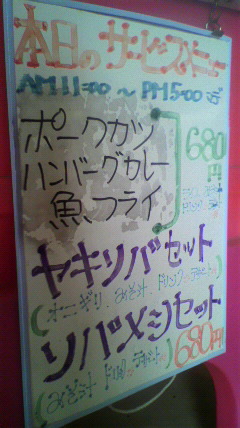 本日のサービスメニュー
AM11:00～PM5:00迄
ポークカツ
ハンバーグカレー
魚フライ
680円
ヤキソバセット
(オニギリ、みそ汁、ドリンク、デザート)
ソバメシセット
(みそ汁、ドリンク、デザート)
680円